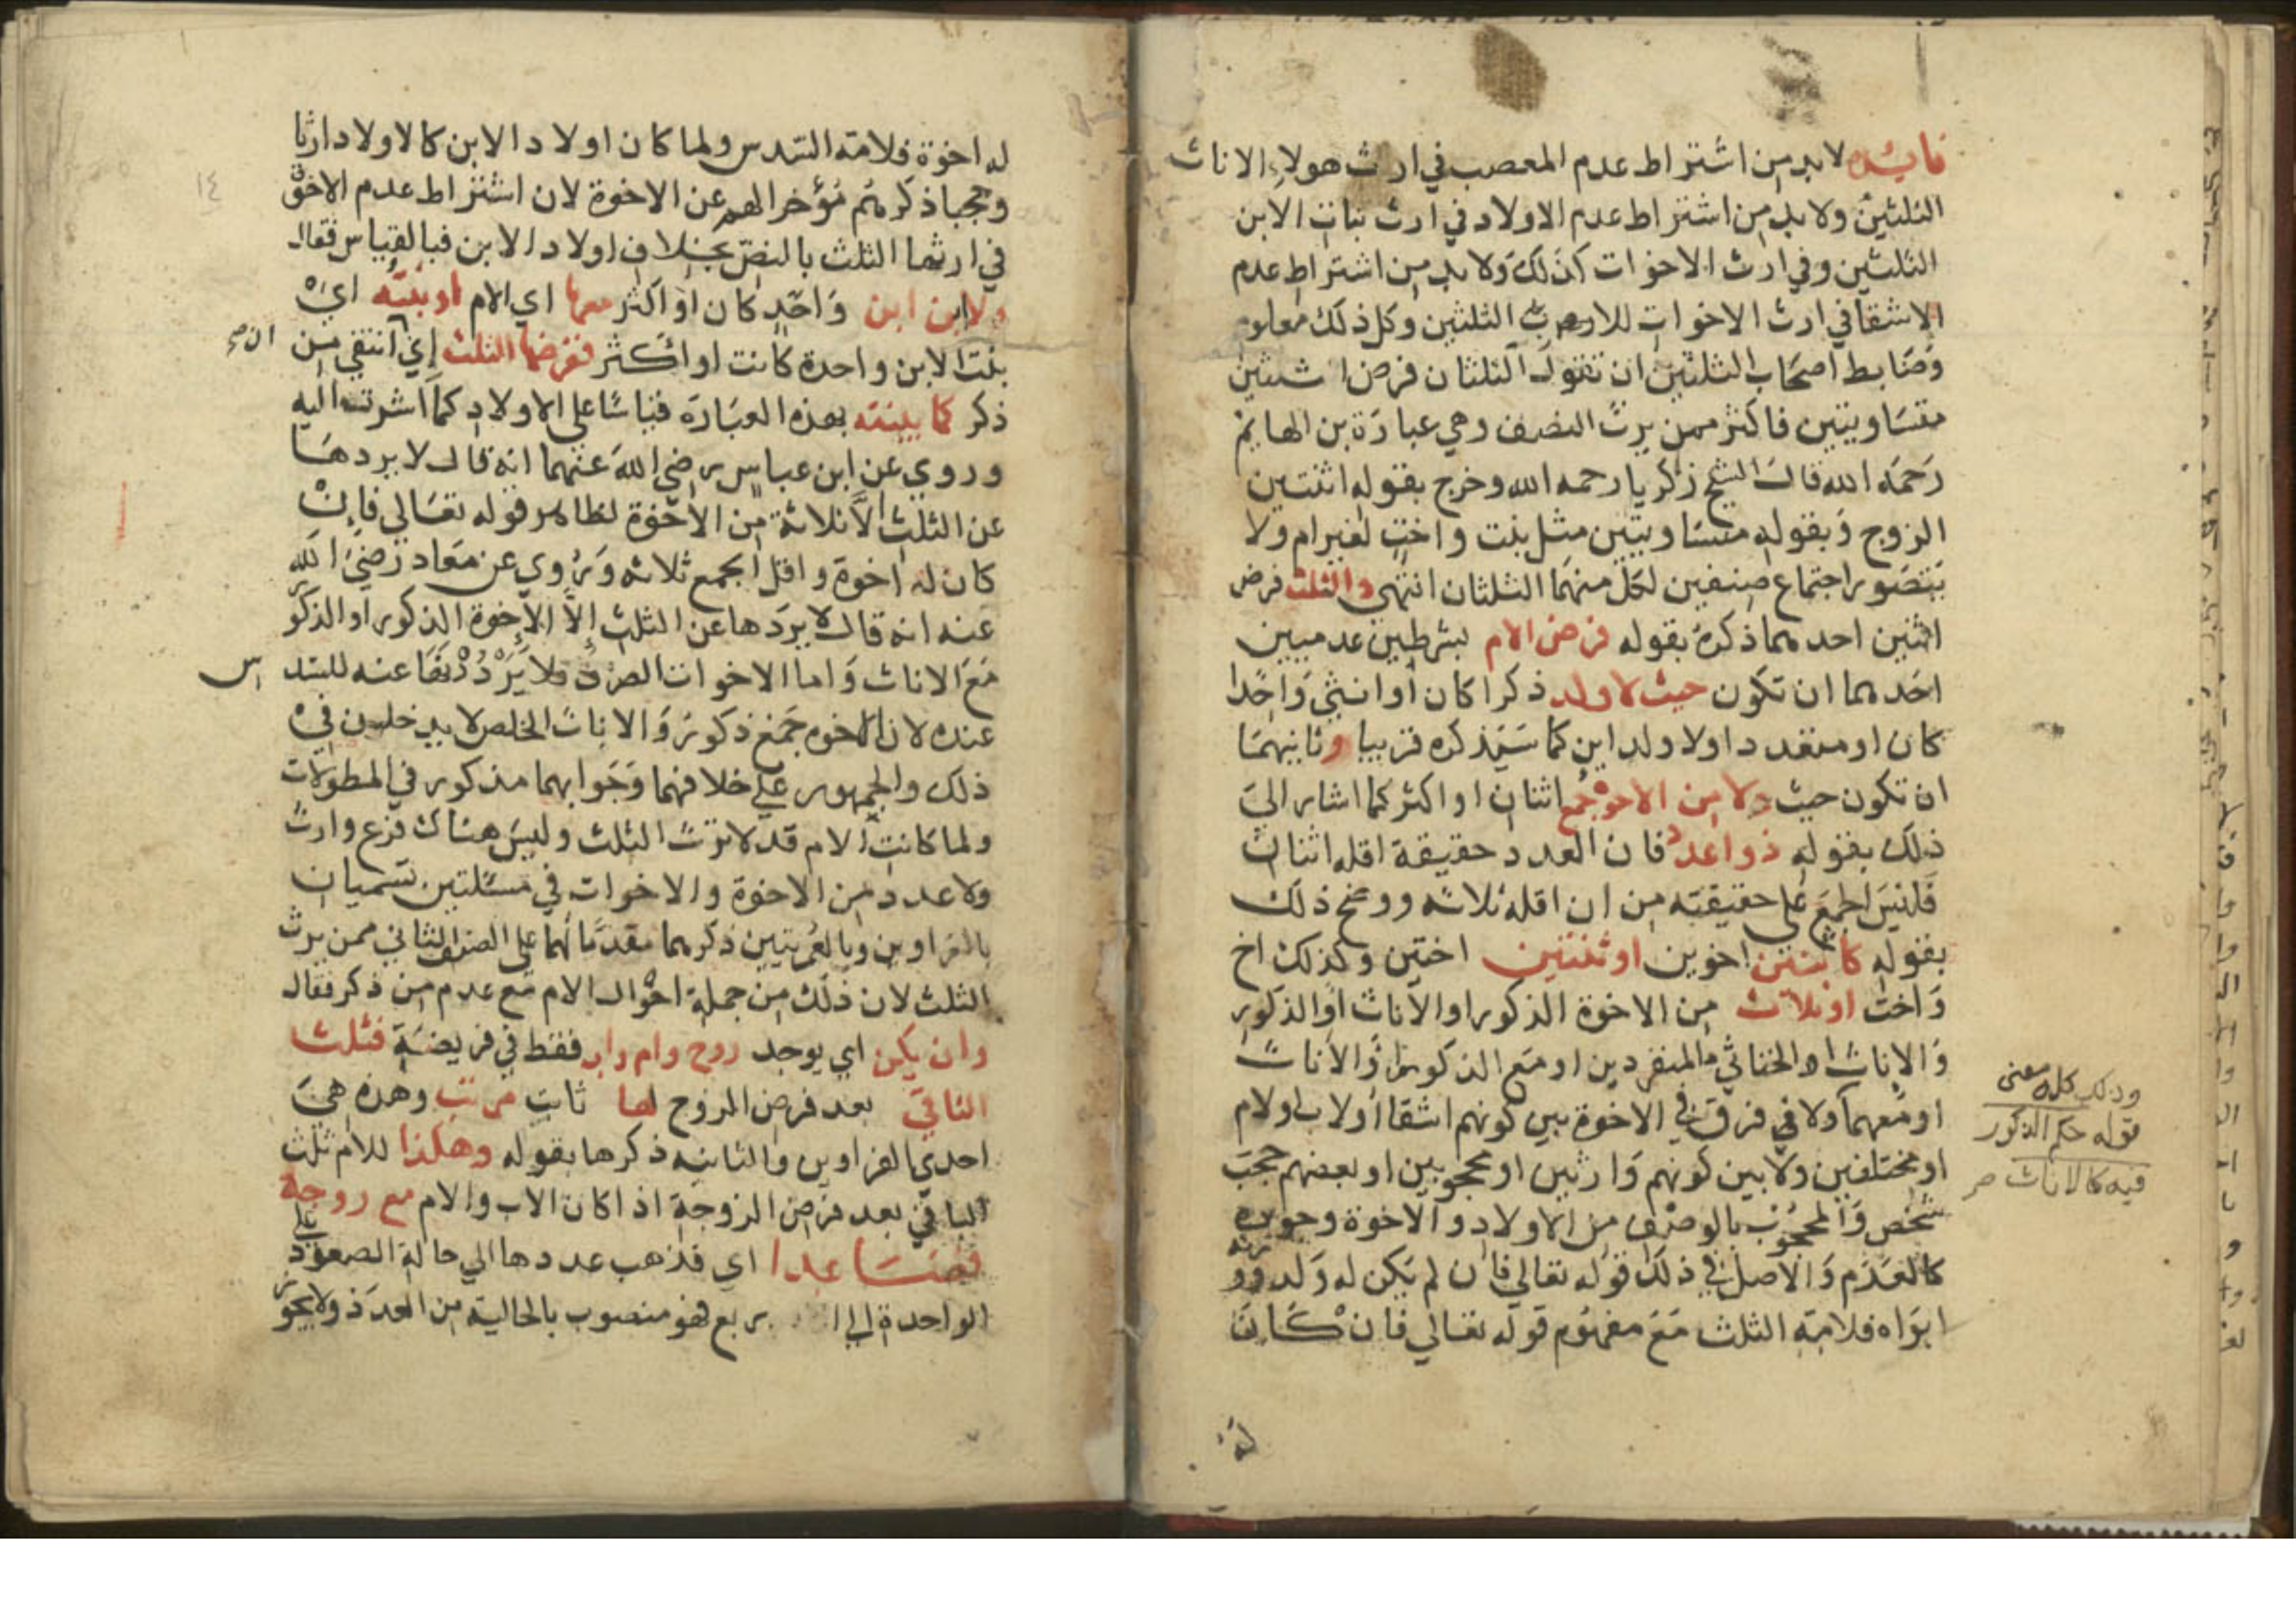 فايده لا بد من اشتراط عدم المعصب في ارث هولاء الاناث
الثلثين ولا بد من اشتراط عدم الاولاد في ارث بنات الابن
الثلثين وفي ارث الاخوات كذلك ولا بد من اشتراط عدم
الاشقا في ارث الاخوات للاب الثلثين وكل ذلك معلوم
وضابط اصحاب الثلثين ان تقول الثلثان فرض اثنتين
متساويتين فاكثر ممن يرث النصف وهي عبارة بن الهايم
رحمه الله قال الشيخ زكريا رحمه الله وخرج بقوله اثنتين
الزوج وبقوله متساويتين مثل بنت واخت لغير ام ولا
يتصور اجتماع صنفين لكل منهما الثلثان انتهي والثلث فرض
اثنين احدهما ذكره بقوله فرض الام بشرطين عدميين
احدهما ان تكون حيث لا ولد ذكرا كان او انثي واحدا
كان او متعددا ولا ولد ابن كما سيذكره قريبا وثانيهما
ان تكون حيث ولا من الاخوة جمع اثنان او اكثر كما اشار الي
ذلك بقوله ذو اعدد فان العدد حقيقة اقله اثنان
فليس الجمع علي حقيقته من ان اقله ثلاثه ووضح ذلك
بقوله كاثنين اخوين او ثنتين اختين وكذلك اخ
واخت او ثلاث من الاخوة الذكور او الاناث او الذكور
والاناث او الخناثي المنفردين او مع الذكور او الاناث
او معهما ولا في فرق في الاخوة بين كونهم اشقا او لاب او لام
او مختلفين ولا بين كونهم وارثين او محجوبين او بعضهم حجب
شخص والمحجوب بالوصف من الاولاد والاخوة وجوده
كالعدم والاصل في ذلك قوله تعالي فان لم يكن له ولد وورثه
ابواه فلامه الثلث مع مفهوم قوله تعالي فان كان
وذلك كله معني
قوله حكم الذكور
فيه كالاناث
له
١٤
له اخوة فلامه السدس ولما كان اولاد الابن كالاولاد ارثا
وحجبا ذكرهم مؤخرا لهم عن الاخوة لان اشتراط عدم الاخوة
في ارثها الثلث بالنص بخلاف اولاد الابن فبالقياس فقال
ولا ابن ابن واحد كان او اكثر معها اي الام او بنته اي
بنت الابن واحدة كانت او اكثر ففرضها الثلث اي انتفي من
ذكر كما بينته بهذه العبارة قياسا علي الاولاد كما اشرت اليه
وروي عن ابن عباس رضي الله عنهما انه قال لا يردها
عن الثلث الا ثلاثة من الاخوة لظاهر قوله تعالي فان
كان له اخوة واقل الجمع ثلاثه وروي عن معاد رضي الله
عنه انه قال لا يردها عن الثلث إلا الإخوة الذكور او الذكور
مع الاناث واما الاخوات الصرف فلا يردونها عنه للسدس
عنده لان الاخوه جمع ذكور والاناث الخلص لا يدخلن في
ذلك والجمهور علي خلافهما وجوابهما مذكور في المطولات
ولما كانت الام قد لا ترث الثلث وليس هناك فرع وارث
ولا عدد من الاخوة والاخوات في مسئلتين تسميان
بالغراوين وبالعمريتين ذكرهما مقدما لهما علي الصنف الثاني ممن يرث
الثلث لان ذلك من جملة احوال الام مع عدم من ذكر فقال
وان يكن اي يوجد زوج وام واب فقط في فريضة فثلث
الباقي بعد فرض الزوج لها ثابت مرتب وهذه هي
احدي الغراوين والثانيه ذكرها بقوله وهكذا للام ثلث
الباقي بعد فرض الزوجة اذا كان الاب والام مع زوجة
فصاعدا اي فذهب عددها الي حالة الصعود علي
الواحدة الي اربع فهو منصوب بالحالية من العدد ولا يجوز